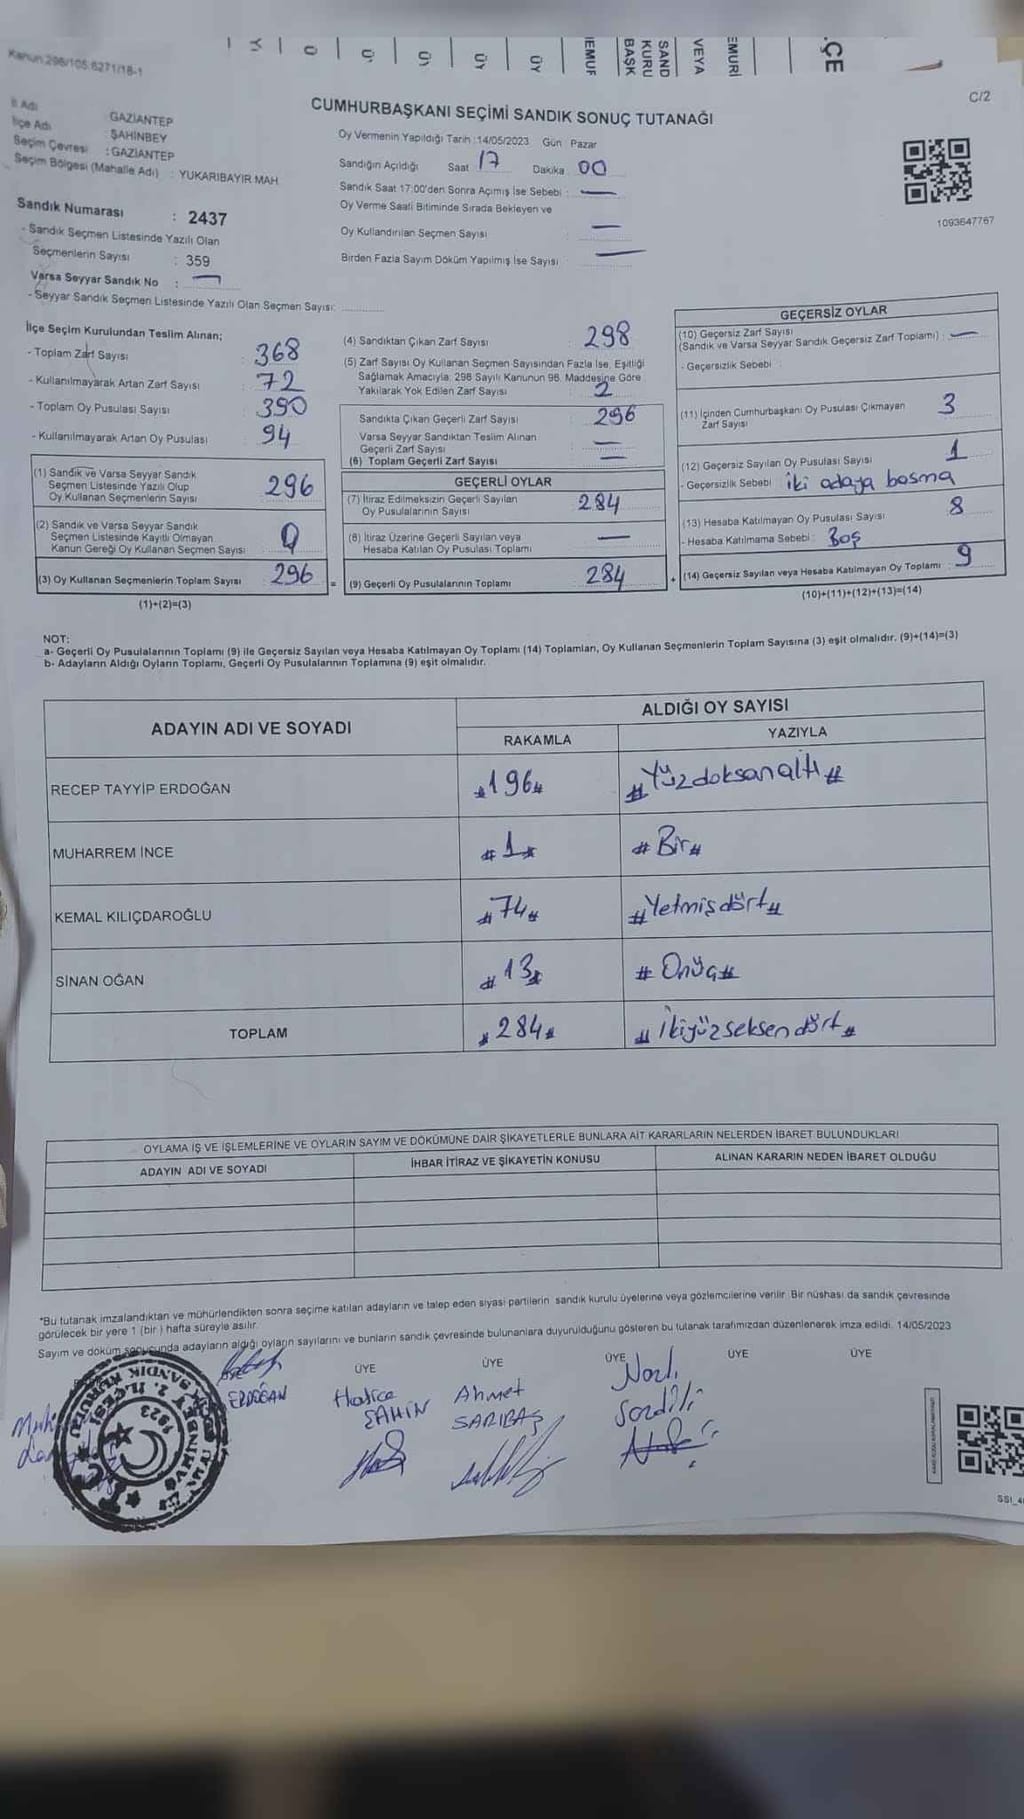 Kanun:298/105:6271/18-1
C/2
CUMHURBAŞKANI SEÇİMİ SANDIK SONUÇ TUTANAĞI
İl Adı GAZİANTEP
İlçe Adı : ŞAHİNBEY
Seçim Çevresi : GAZİANTEP
Seçim Bölgesi (Mahalle Adı) : YUKARIBAYIR MAH
Oy Vermenin Yapıldığı Tarih :14/05/2023 Gün Pazar
Sandığın Açıldığı Saat 17 Dakika 00
Sandık Saat 17:00'den Sonra Açmış İse Sebebi : —
Oy Verme Saati Bitiminde Sırada Bekleyen ve
Oy Kullandırılan Seçmen Sayısı —
Birden Fazla Sayım Döküm Yapılmış İse Sayısı —
1093647767
Sandık Numarası : 2437
- Sandık Seçmen Listesinde Yazılı Olan
Seçmenlerin Sayısı : 359
Varsa Seyyar Sandık No : —
- Seyyar Sandık Seçmen Listesinde Yazılı Olan Seçmen Sayısı:
İlçe Seçim Kurulundan Teslim Alınan;
- Toplam Zarf Sayısı 368
- Kullanılmayarak Artan Zarf Sayısı 72
- Toplam Oy Pusulası Sayısı 390
- Kullanılmayarak Artan Oy Pusulası 94
(1) Sandık ve Varsa Seyyar Sandık
Seçmen Listesinde Yazılı Olup
Oy Kullanan Seçmenlerin Sayısı 296
(2) Sandık ve Varsa Seyyar Sandık
Seçmen Listesinde Kayıtlı Olmayan
Kanun Gereği Oy Kullanan Seçmen Sayısı 0
(3) Oy Kullanan Seçmenlerin Toplam Sayısı 296
(1)+(2)=(3)
(4) Sandıktan Çıkan Zarf Sayısı : 298
(5) Zarf Sayısı Oy Kullanan Seçmen Sayısından Fazla İse, Eşitliği
Sağlamak Amacıyla, 298 Sayılı Kanunun 98. Maddesine Göre
Yakılarak Yok Edilen Zarf Sayısı 2
Sandıkta Çıkan Geçerli Zarf Sayısı 296
Varsa Seyyar Sandıktan Teslim Alınan
Geçerli Zarf Sayısı —
(6) Toplam Geçerli Zarf Sayısı —
GEÇERLİ OYLAR
(7) İtiraz Edilmeksizin Geçerli Sayılan
Oy Pusulalarının Sayısı 284
(8) İtiraz Üzerine Geçerli Sayılan veya
Hesaba Katılan Oy Pusulası Toplamı —
= (9) Geçerli Oy Pusulalarının Toplamı 284
GEÇERSİZ OYLAR
(10) Geçersiz Zarf Sayısı
(Sandık ve Varsa Seyyar Sandık Geçersiz Zarf Toplamı) : —
- Geçersizlik Sebebi :
(11) İçinden Cumhurbaşkanı Oy Pusulası Çıkmayan
Zarf Sayısı 3
(12) Geçersiz Sayılan Oy Pusulası Sayısı 1
- Geçersizlik Sebebi : iki adaya basma
(13) Hesaba Katılmayan Oy Pusulası Sayısı 8
- Hesaba Katılmama Sebebi : Boş
+ (14) Geçersiz Sayılan veya Hesaba Katılmayan Oy Toplamı : 9
(10)+(11)+(12)+(13)=(14)
NOT:
a- Geçerli Oy Pusulalarının Toplamı (9) ile Geçersiz Sayılan veya Hesaba Katılmayan Oy Toplamı (14) Toplamları, Oy Kullanan Seçmenlerin Toplam Sayısına (3) eşit olmalıdır. (9)+(14)=(3)
b- Adayların Aldığı Oyların Toplamı, Geçerli Oy Pusulalarının Toplamına (9) eşit olmalıdır.
ADAYIN ADI VE SOYADI ALDIĞI OY SAYISI
RAKAMLA YAZIYLA
RECEP TAYYİP ERDOĞAN #196# #Yüzdoksanaltı#
MUHARREM İNCE #1# #Bir#
KEMAL KILIÇDAROĞLU #74# #Yetmişdört#
SİNAN OĞAN #13# #Onüç#
TOPLAM #284# #ikiyüzseksendört#
OYLAMA İŞ VE İŞLEMLERİNE VE OYLARIN SAYIM VE DÖKÜMÜNE DAİR ŞİKAYETLERLE BUNLARA AİT KARARLARIN NELERDEN İBARET BULUNDUKLARI
ADAYIN ADI VE SOYADI İHBAR İTİRAZ VE ŞİKAYETİN KONUSU ALINAN KARARIN NEDEN İBARET OLDUĞU
*Bu tutanak imzalandıktan ve mühürlendikten sonra seçime katılan adayların ve talep eden siyasi partilerin sandık kurulu üyelerine veya gözlemcilerine verilir. Bir nüshası da sandık çevresinde
görülecek bir yere 1 (bir ) hafta süreyle asılır.
Sayım ve döküm sonucunda adayların aldığı oyların sayılarını ve bunların sandık çevresinde bulunanlara duyurulduğunu gösteren bu tutanak tarafımızdan düzenlenerek imza edildi. 14/05/2023
ÜYE ÜYE ÜYE ÜYE ÜYE
ERDOĞAN
Hatice
ŞAHİN
Ahmet
SARIBAŞ